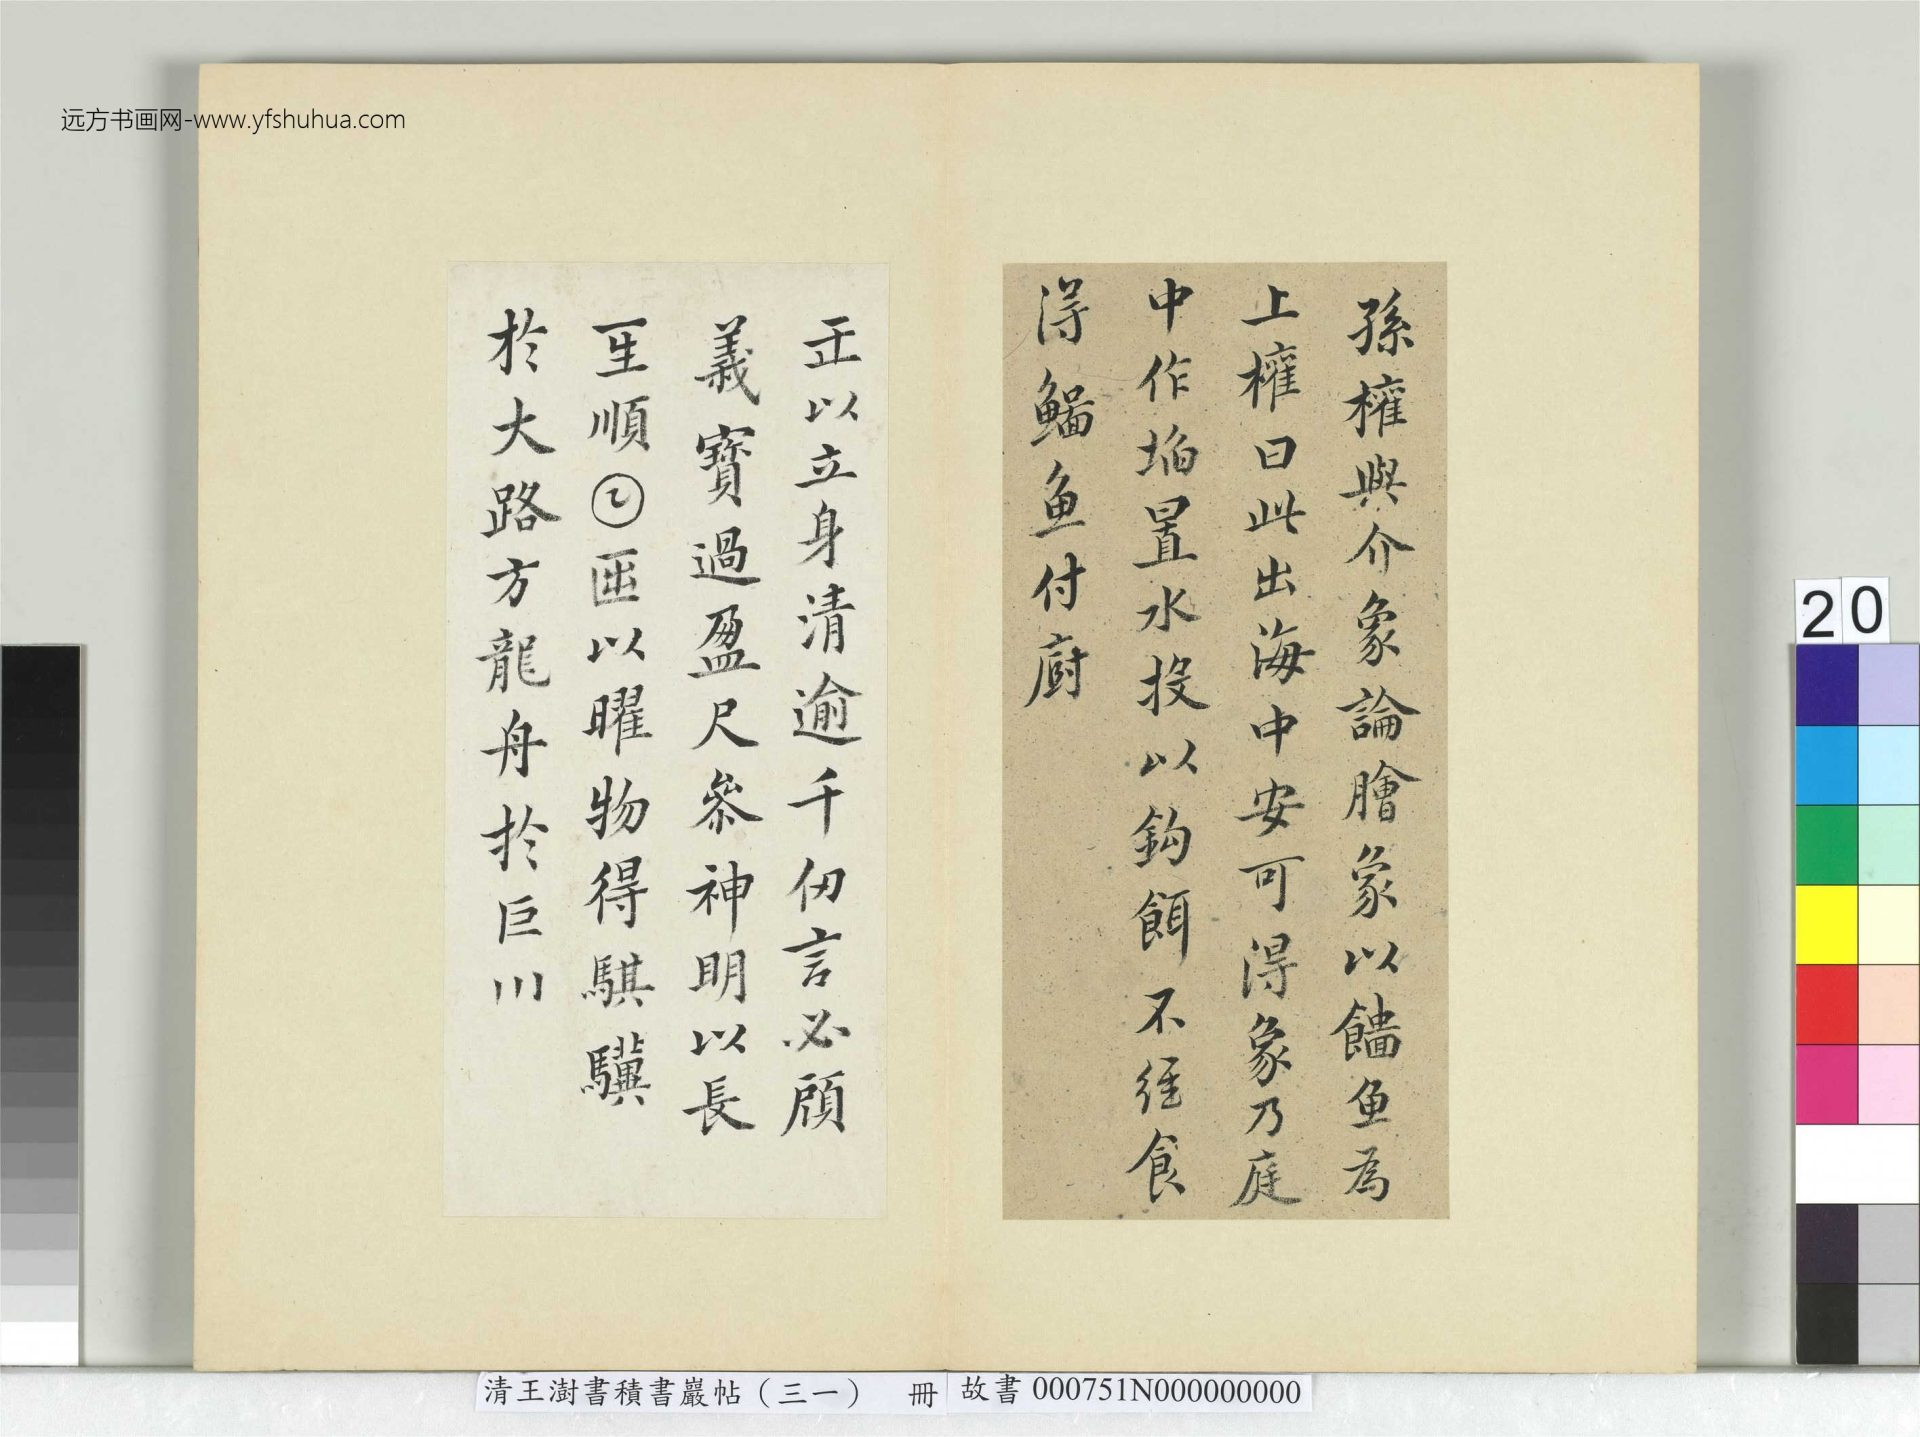 孫權與介象論膾象以鯔魚為
上權曰此出海中安可得象乃庭
中作埳置水投以鈎餌不徑食
得鯔魚付廚
正以立身清逾千仞言必顧
義寶過盈尺參神明以長
𤯔順𡆠𠥱以曜物得騏驥
於大路方龍舟於巨川
远方书画网-www.yfshuhua.com
20
清王澍書積書巖帖（三一） 冊 故書 000751N000000000